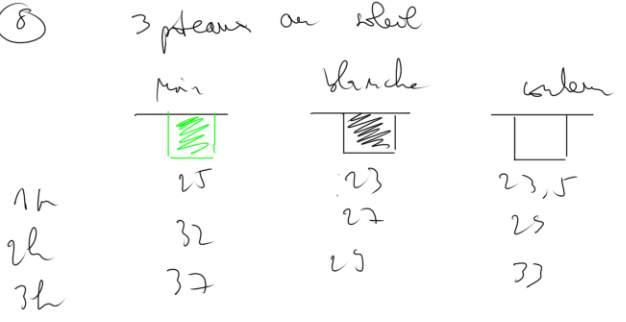 8 3 poteaux au soleil
noir blanche couleur
1h 25 23 23,5
2h 32 27 29
3h 37 29 33